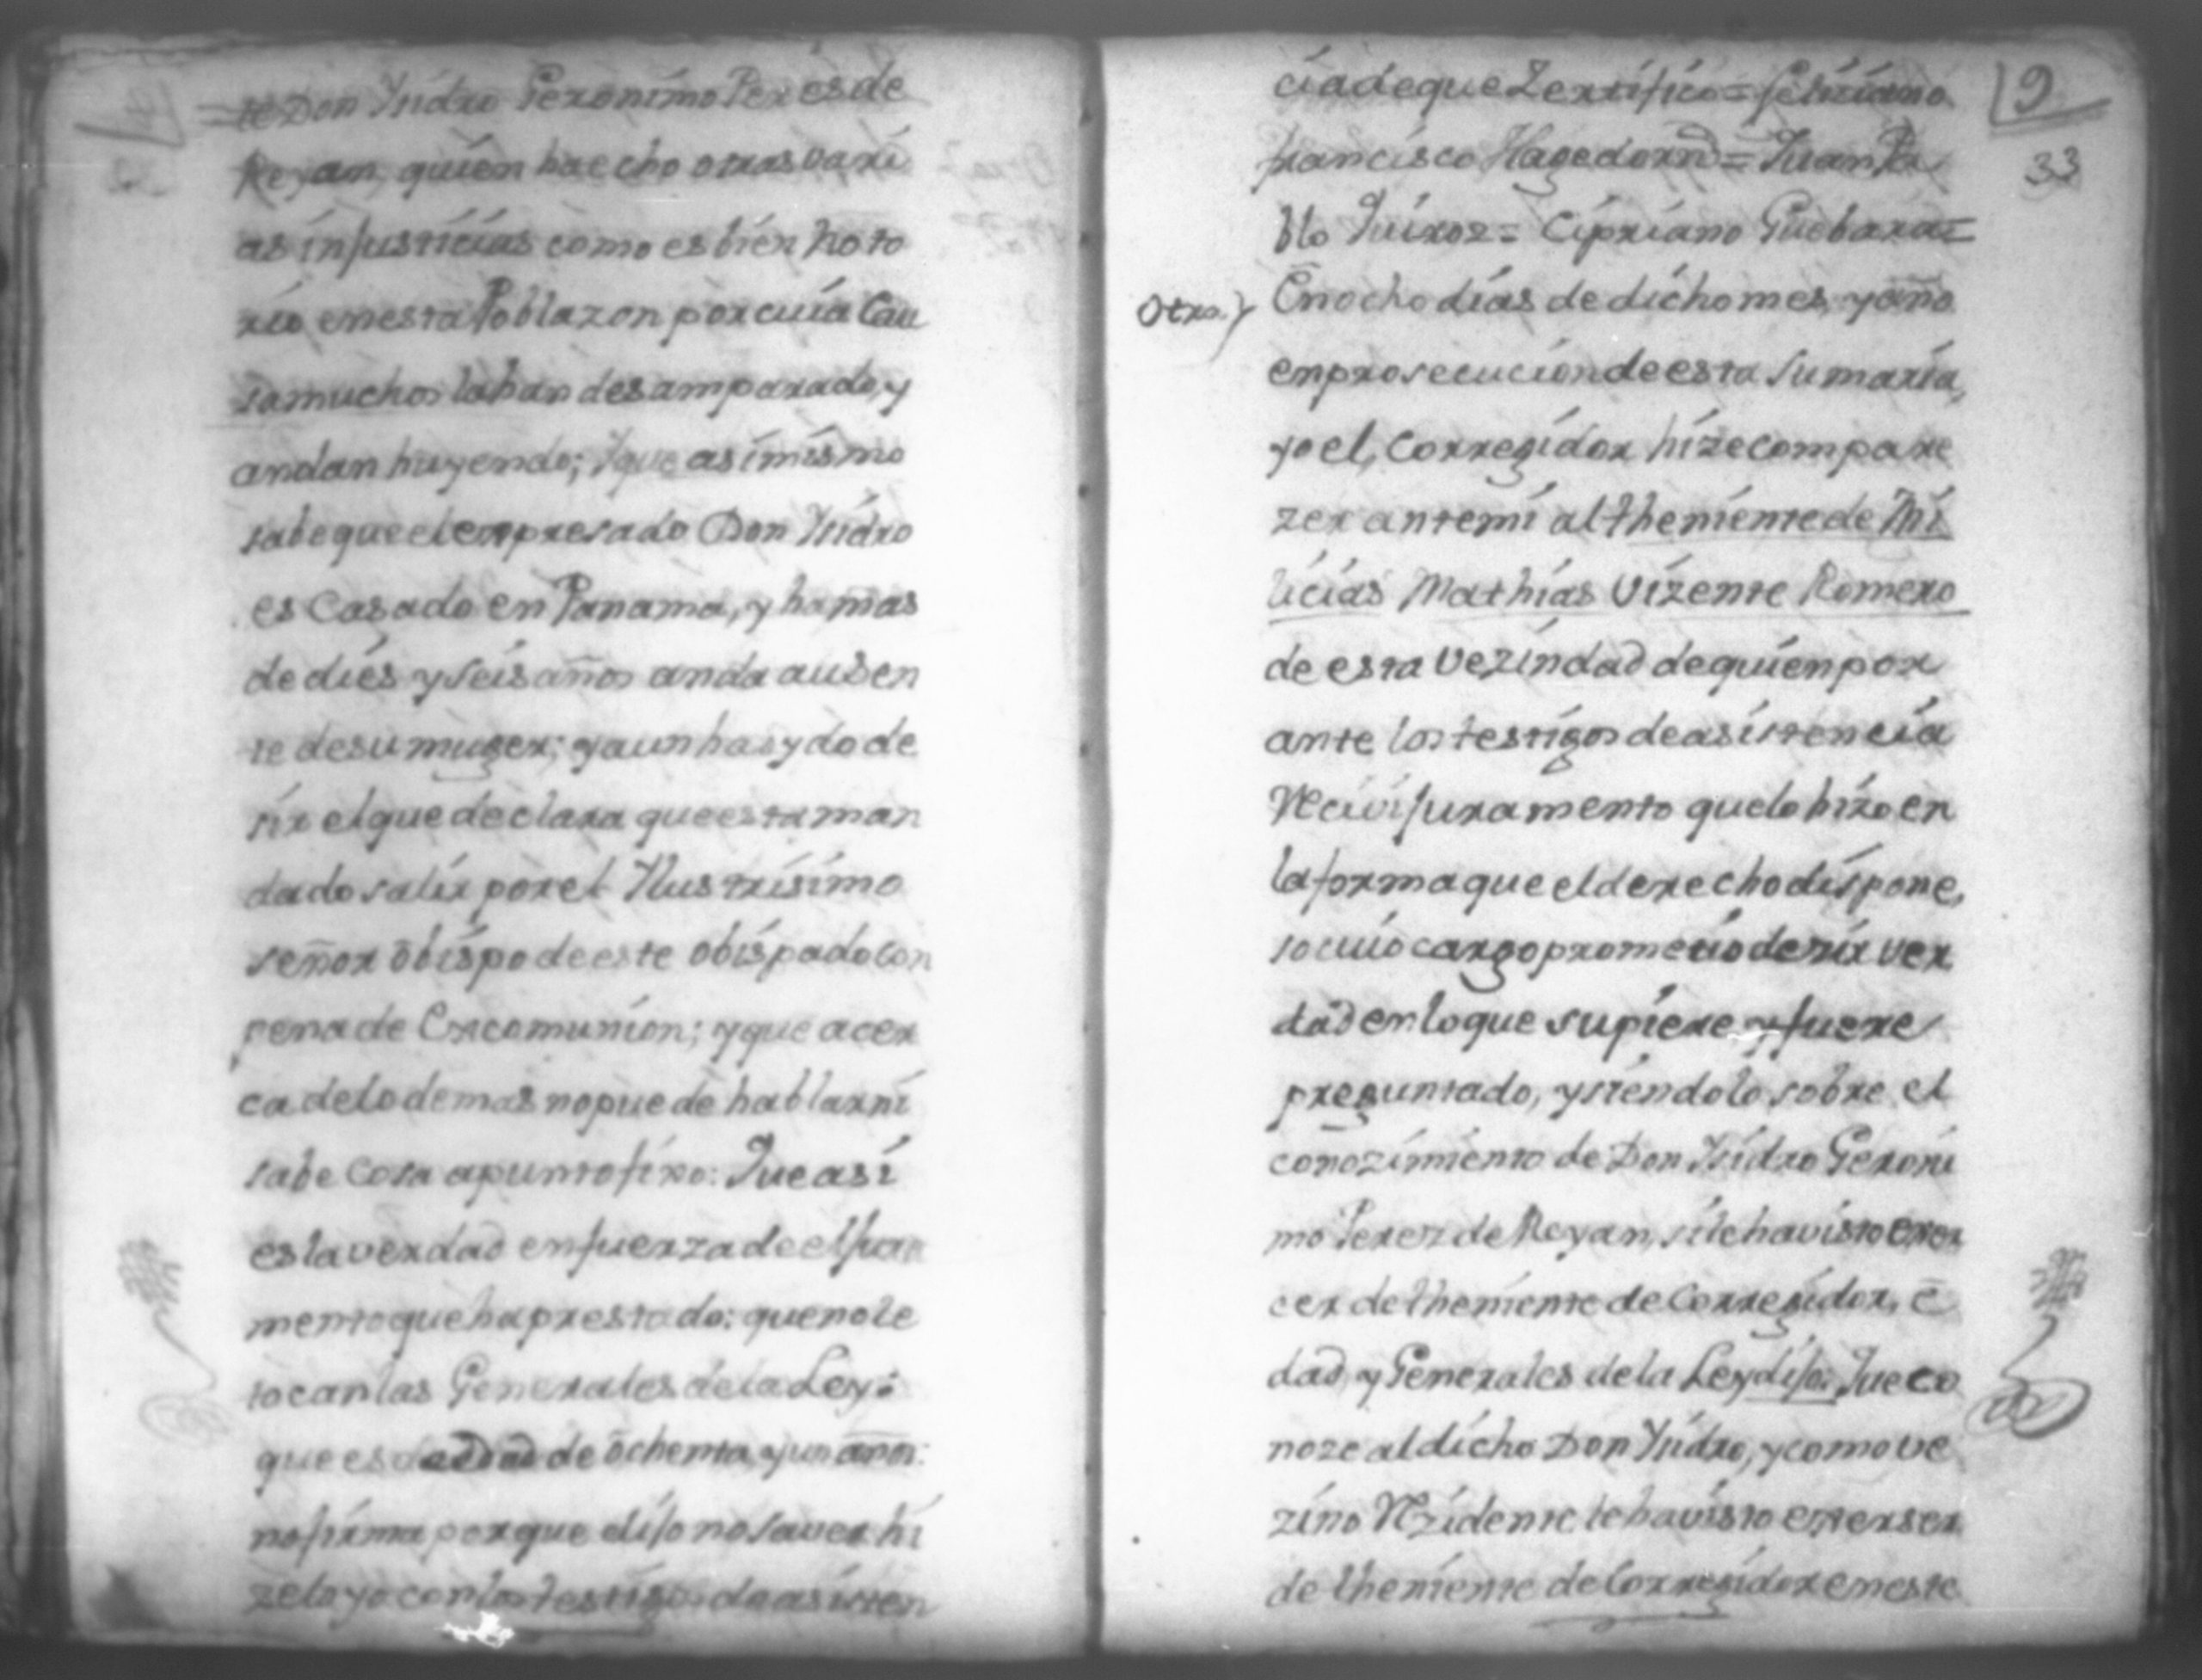 te Don Ysidro Geronimo Peres de
Reyan, quien ha echo otras vari
as injusticias como es bien noto
rio en esta Poblazon por cuia Cau
sa muchos la han desamparado, y
andan huyendo; y que asimismo
sabe que el expresado Don Ysidro
es Casado en Panama, y ha mas
de dies y seis años anda ausen
te de su muger; y aun ha oydo de
sir el que declara que esta man
dado salir por el Yllustrisimo
señor obispo de este obispado con
pena de Excomunion; y que acer
ca de lo demas no puede hablar ni
sabe cosa a punto fixo: Que asi
es la verdad en fuerza de el jura
mento que ha prestado: que no le
tocan las Generales de la Ley:
que es de edad de ochenta y un años:
no firma porque dijo no saver hi
zelo yo con los testigos de asisten
9
33
cia de que Zertifico = Feliciano
Francisco Hagedorn = Juan Pa
blo Quiroz = Cipriano Guebara =
Otro.
En ocho dias de dicho mes, y año
en prosecucion de esta sumaria,
yo el, Corregidor hize compare
zer ante mi al theniente de Mi
licias Mathias Vizente Romero
de esta vezindad de quien por
ante los testigos de asistencia
Recivi juramento que lo hizo en
la forma que el derecho dispone,
so cuio cargo prometio desir ver
dad en lo que supiere y fuere
preguntado, y siendolo sobre el
conozimiento de Don Ysidro Geroni
mo Perez de Reyan, si le ha visto exer
cer de theniente de Corregidor, e
dad, y Generales de la Ley dijo: Que co
noze al dicho Don Ysidro, y como ve
zino Rezidente le ha visto exerser
de theniente de Corregidor en este